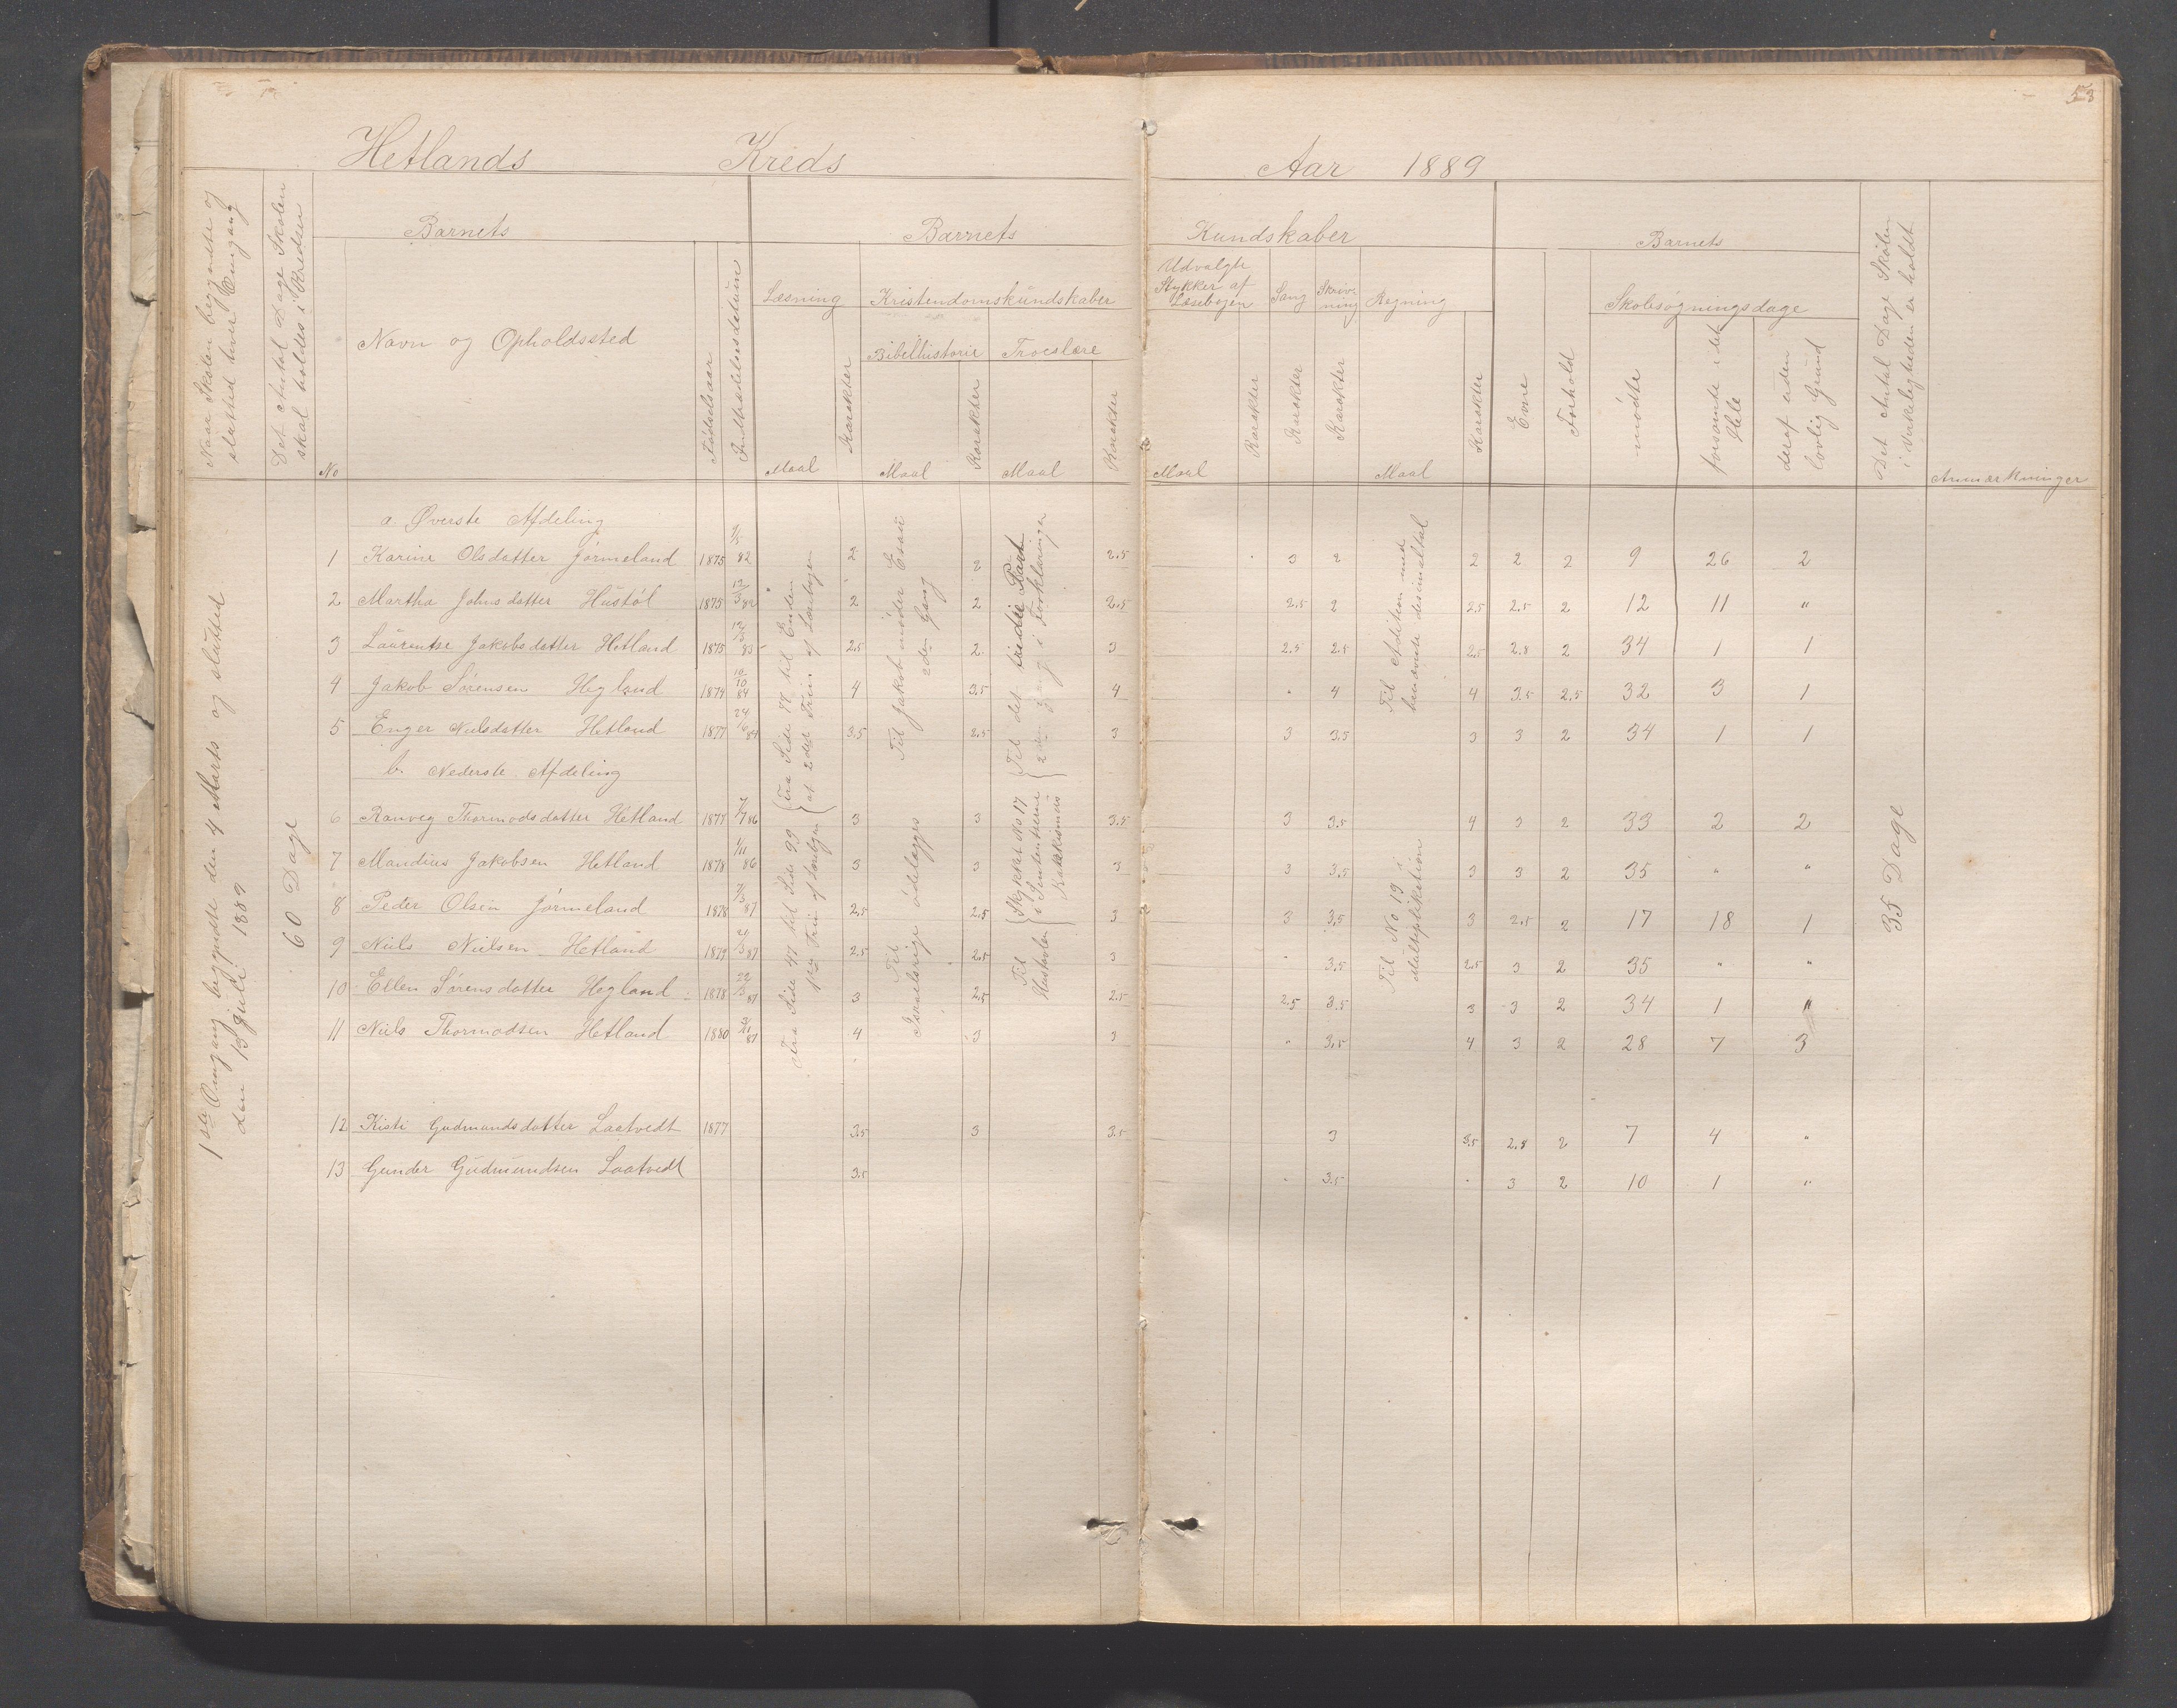 53
Hetlands Kreds Aar 1889
Naar Skolen begyndte og
slutted hver Omgang
Det Antal Dage Skolen
skal holdes i Kredsen
Barnets Barnets Kundskaber Barnets
No Navn og Opholdssted Fødselsaar Indtrædelsesdatum
Læsning Kristendomskundskaber
Maal Karakter
Bibelhistorie Troeslære
Maal Karakter Maal Karakter
Udvalgte
Stykker af
Læsebogen
Maal Karakter
Sang Karakter
Skriv-
ning Karakter
Regning
Maal Karakter
Evne Forhold
Skolesøgningsdage
mødte
forsømte i det
Hele
deraf uden
lovlig Grund
Det Antal Dage Skolen
i Virkeligheden er holdt
Anmærkninger
1ste Omgang begyndte den 4 Marts og slutted
den 13 Juli 1889
60 Dage
a. Øverste Afdeling
1 Karine Olsdatter Jørmeland 1875 82 2 2 2.5 3 2 2 2 2 9 26 2
2 Martha Johnsdatter Hustøl 1875 12/3 82 2 2 2.5 2.5 2 2.5 2.5 2 12 11 "
3 Laurentse Jakobsdatter Hetland 1875 83 2.5 2 3 2.5 2.5 2.5 2.8 2 34 1 1
4 Jakob Sørensen Hegland 1874 10/10 84 4 3.5 4 " 4 4 3.5 2.5 32 3 1
5 Enger Nielsdatter Hetland 1877 84 3.5 2.5 3 3 3.5 3 3 2 34 1 1
b. Nederste Afdeling
6 Ranveig Thormodsdatter Hetland 1877 86 3 3 3.5 3 3.5 4 3 2 33 2 2
7 Mandius Jakobsen Hetland 1878 1/11 86 3 3 3 3 3.5 3 3 2 35 " "
8 Peder Olsen Jørmeland 1878 87 2.5 2.5 3 3 3.5 3 2.5 2 17 18 1
9 Niels Nielsen Hetland 1879 87 2.5 2.5 3 " 3.5 2.5 3 2 35 " "
10 Ellen Sørensdatter Hegland 1878 87 3 2.5 2.5 2.5 3.5 3 3 2 34 1 "
11 Niels Thormodsen Hetland 1880 87 4 3 3 " 3.5 4 3 2 28 7 3
12 Kisti Gudmundsdatter Laatvedt 1877 3.5 3 3.5 3 3.5 2.8 2 7 4 "
13 Gunder Gudmundsen Laatvedt 3.5 " 3.5 " 3 2 10 1 "
Fra Side 78 til Enden
af 2det Trin af Læsebogen
Fra Side 47 til Side 99
af Læsebogen
Til Jakob møder Esau
2den Gang
Til
Israelsrige ødelægges
Til det tredie Part
2den Gang i Forklaringer
Til Stykket No 17
i Sententserne
Hustavlen Katekismus
Til Adition med
benævnte desimaltal
Til No 19 i
Multiplikation
35 Dage